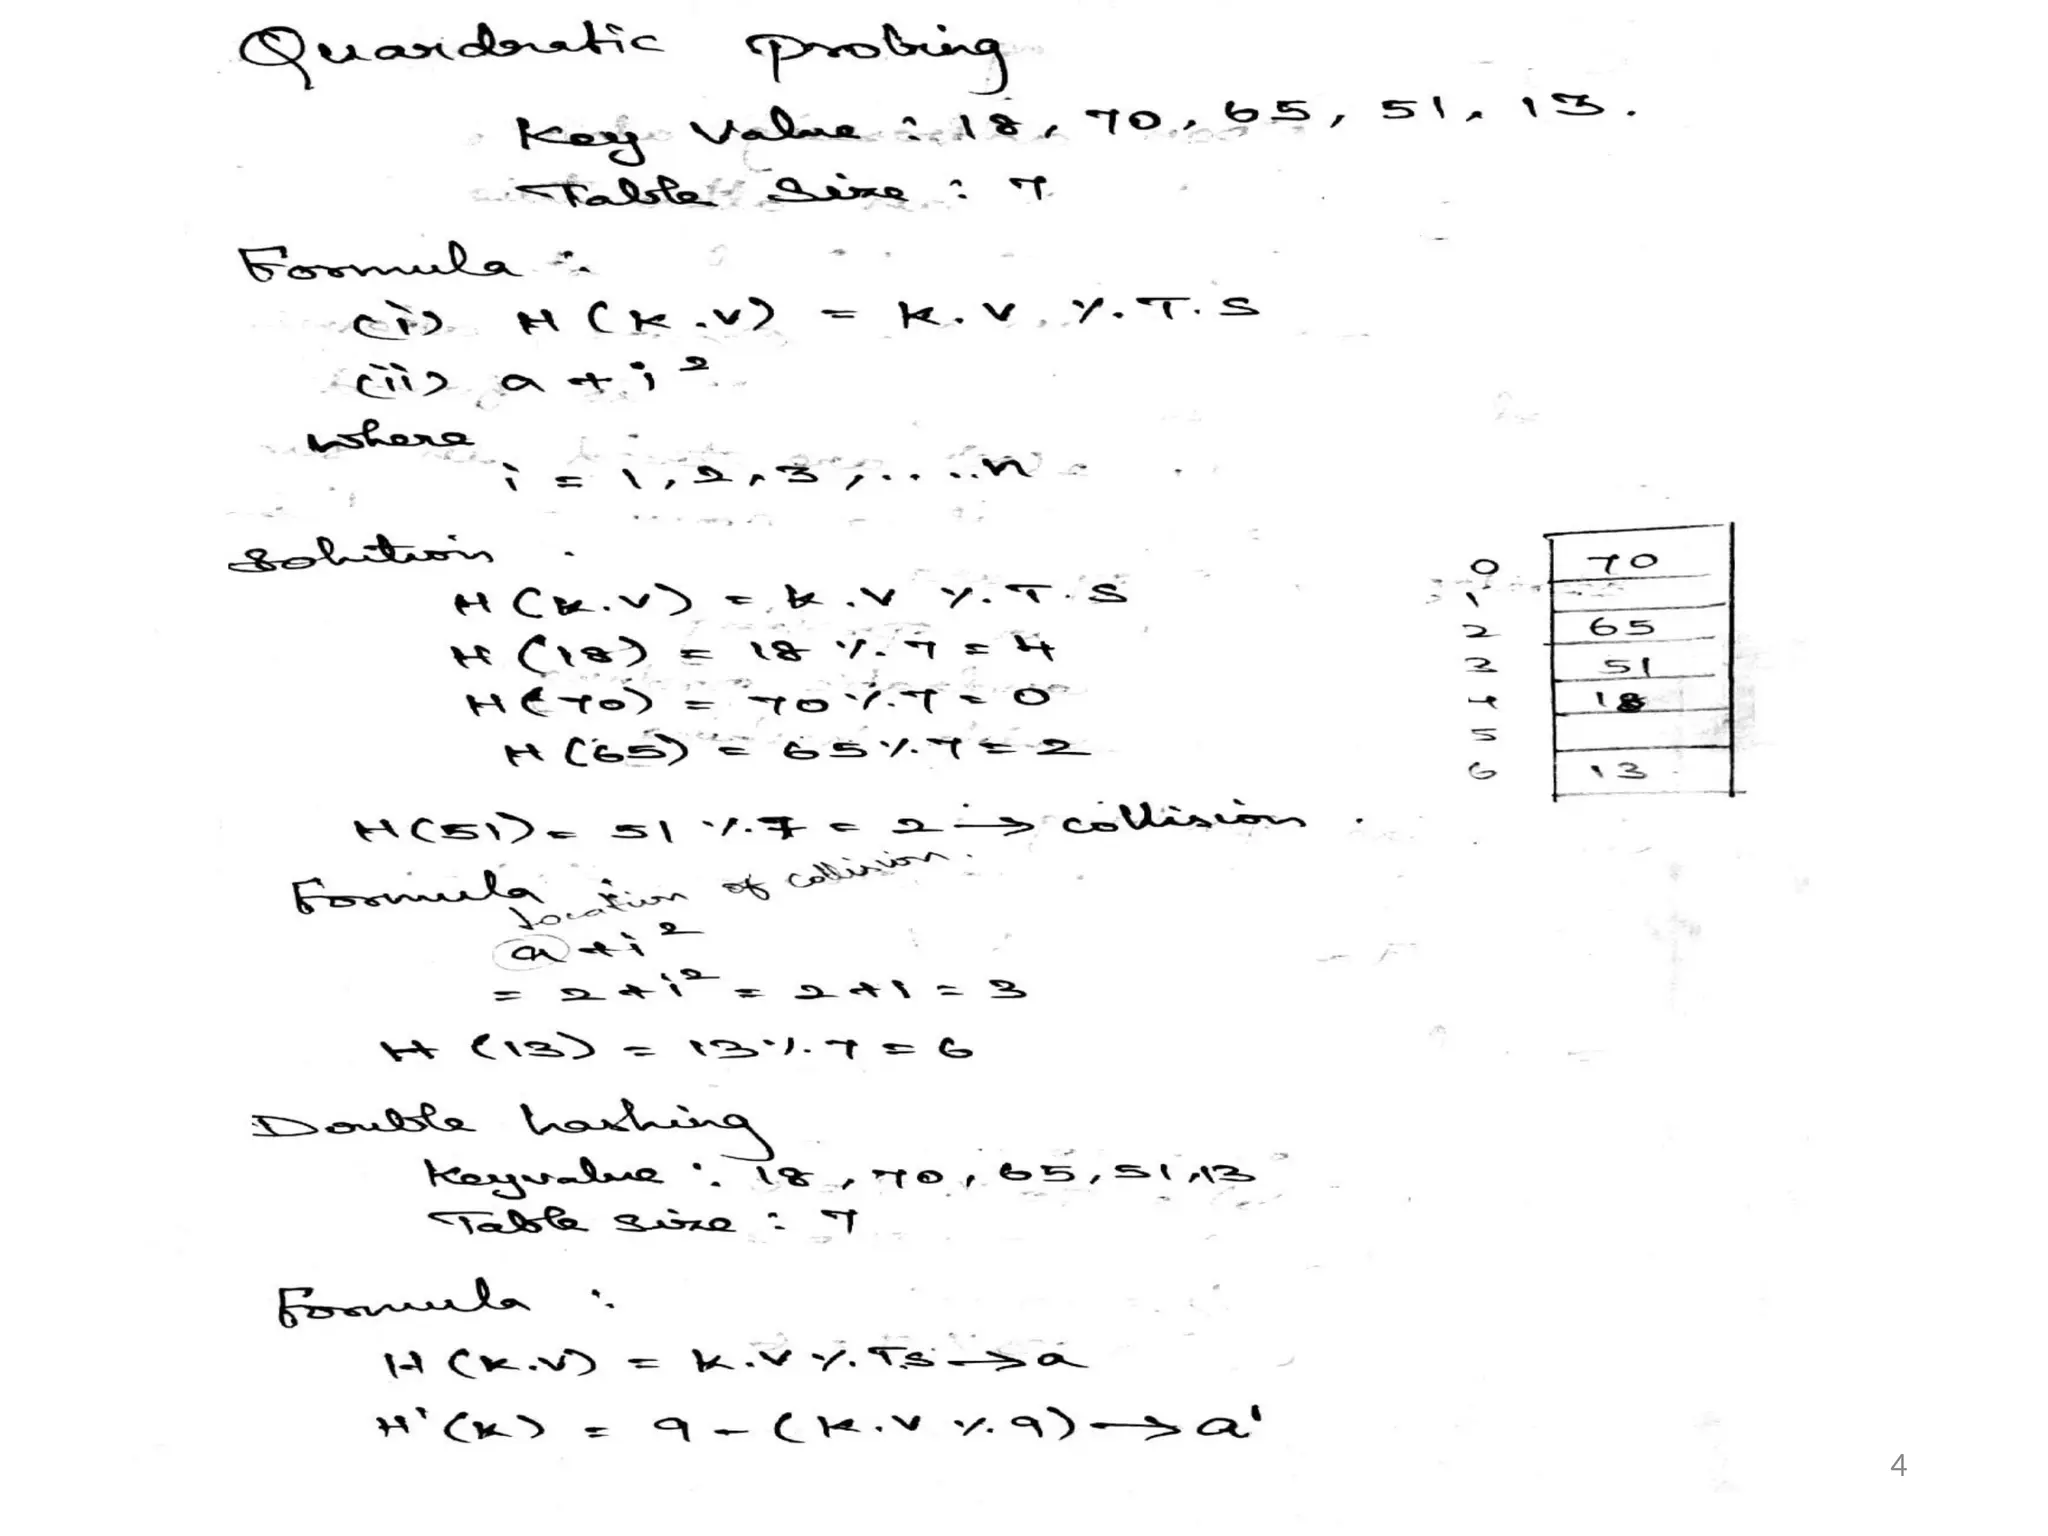 Quardratic probing
Key value : 18, 70, 65, 51, 13.
Table Size : 7
Formula :
(i) H (K.V) = K.V %. T.S
(ii) a + i²
where
i = 1, 2, 3, .....n
Solution
H (K.V) = K.V %. T.S
H (18) = 18 %. 7 = 4
H (70) = 70 %. 7 = 0
H (65) = 65 %. 7 = 2
H(51) = 51 %. 7 = 2 → collision.
Formula location of collision.
a + i²
= 2 + i² = 2 + 1 = 3
H (13) = 13 %. 7 = 6
0 70
1
2 65
3 51
4 18
5
6 13
Double hashing
Keyvalue : 18, 70, 65, 51, 13
Table size : 7
Formula :
H (K.V) = K.V %. T.S → a
H' (K) = 9 - (K.V %. 9) → a'
4